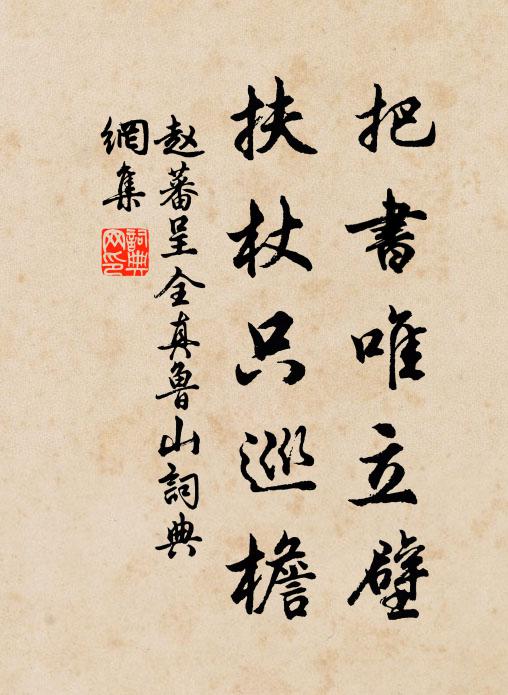 把書唯立壁
扶杖只巡檐
赵蕃呈全真魯山詞典
網集
詞典
网印